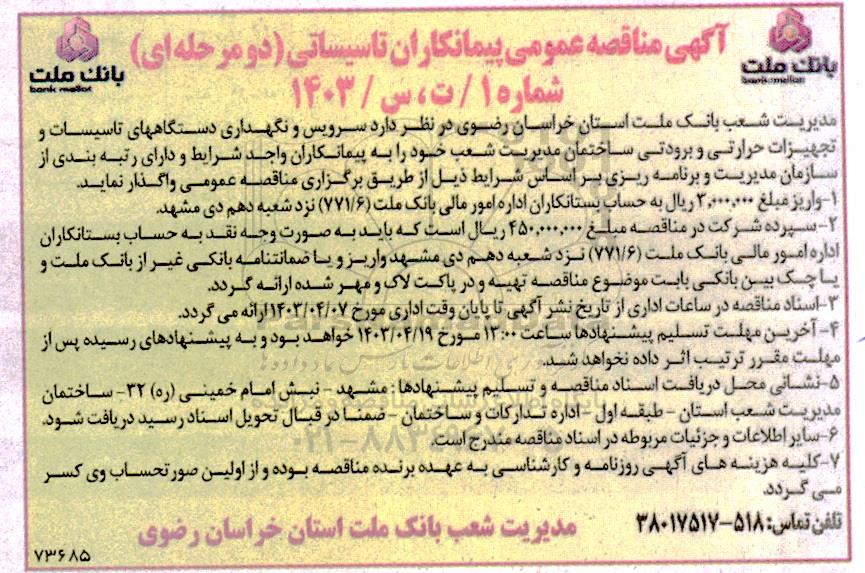 آگهی مناقصه عمومی پیمانکاران تاسیساتی (دو مرحله ای)
شماره ۱ / ت ، س / ۱۴۰۳
بانک ملت
bank mellat
بانک ملت
bank mellat
مدیریت شعب بانک ملت استان خراسان رضوی در نظر دارد سرویس و نگهداری دستگاههای تاسیسات و
تجهیزات حرارتی و برودتی ساختمان مدیریت شعب خود را به پیمانکاران واجد شرایط و دارای رتبه بندی از
سازمان مدیریت و برنامه ریزی بر اساس شرایط ذیل از طریق برگزاری مناقصه عمومی واگذار نماید.
۱-واریز مبلغ ۲,۰۰۰,۰۰۰ ریال به حساب بستانکاران اداره امور مالی بانک ملت (۷۷۱/۶) نزد شعبه دهم دی مشهد.
۲-سپرده شرکت در مناقصه مبلغ ۴۵۰,۰۰۰,۰۰۰ ریال است که باید به صورت وجه نقد به حساب بستانکاران
اداره امور مالی بانک ملت (۷۷۱/۶) نزد شعبه دهم دی مشهد واریز و یا ضمانتنامه بانکی غیر از بانک ملت و
یا چک بین بانکی بابت موضوع مناقصه تهیه و در پاکت لاک و مهر شده ارائه گردد.
۳-اسناد مناقصه در ساعات اداری از تاریخ نشر آگهی تا پایان وقت اداری مورخ ۱۴۰۳/۰۴/۰۷ ارائه می گردد.
۴-آخرین مهلت تسلیم پیشنهادها ساعت ۱۳:۰۰ مورخ ۱۴۰۳/۰۴/۱۹ خواهد بود و به پیشنهادهای رسیده پس از
مهلت مقرر ترتیب اثر داده نخواهد شد.
۵-نشانی محل دریافت اسناد مناقصه و تسلیم پیشنهادها : مشهد - نبش امام خمینی (ره) ۳۲- ساختمان
مدیریت شعب استان - طبقه اول - اداره تدارکات و ساختمان - ضمنا در قبال تحویل اسناد رسید دریافت شود.
۶-سایر اطلاعات و جزئیات مربوطه در اسناد مناقصه مندرج است.
۷-کلیه هزینه های آگهی روزنامه و کارشناسی به عهده برنده مناقصه بوده و از اولین صورتحساب وی کسر
می گردد.
تلفن تماس: ۵۱۸-۳۸۰۱۷۵۱۷
مدیریت شعب بانک ملت استان خراسان رضوی
۷۳۶۸۵